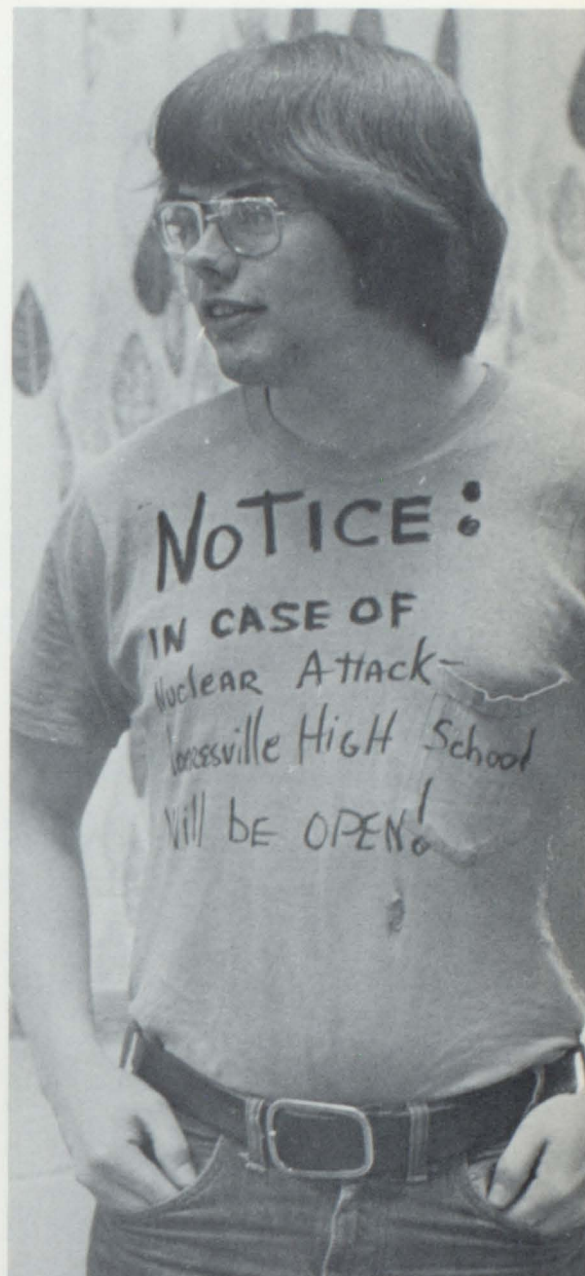 NOTICE:
IN CASE OF
NUCLEAR ATTACK-
High School
Will BE OPEN!